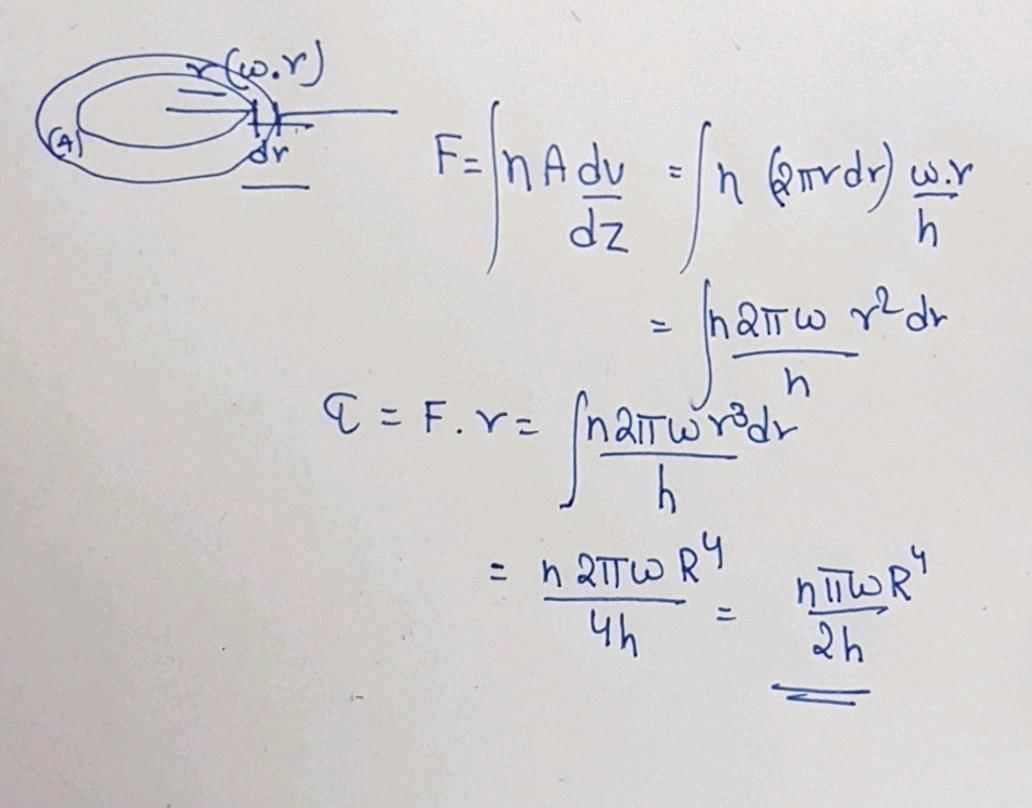 r(ω.r)
(A)
dr
F = ∫ η A dv/dz = ∫ η (2πrdr) ω.r/h
= ∫ η2πω/h r²dr
τ = F.r = ∫ η2πωr³dr/h
= η2πωR⁴/4h = ηπωR⁴/2h